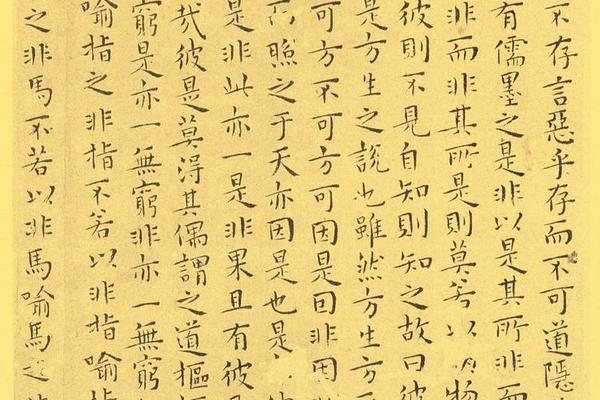 不存言惡乎存而不可道隱
有儒墨之是非以是其所非而
非而非其所是則莫若以明物
彼則不見自知則知之故曰彼
是方生之說也雖然方生方
可方不可方可因是因非因
照之于天亦因是也是
是非此亦一是非果且有彼
哉彼是莫得其偶謂之道樞
窮是亦一無窮非亦一無窮
喻指之非指不若以非指喻指
之非馬不若以非馬喻馬之